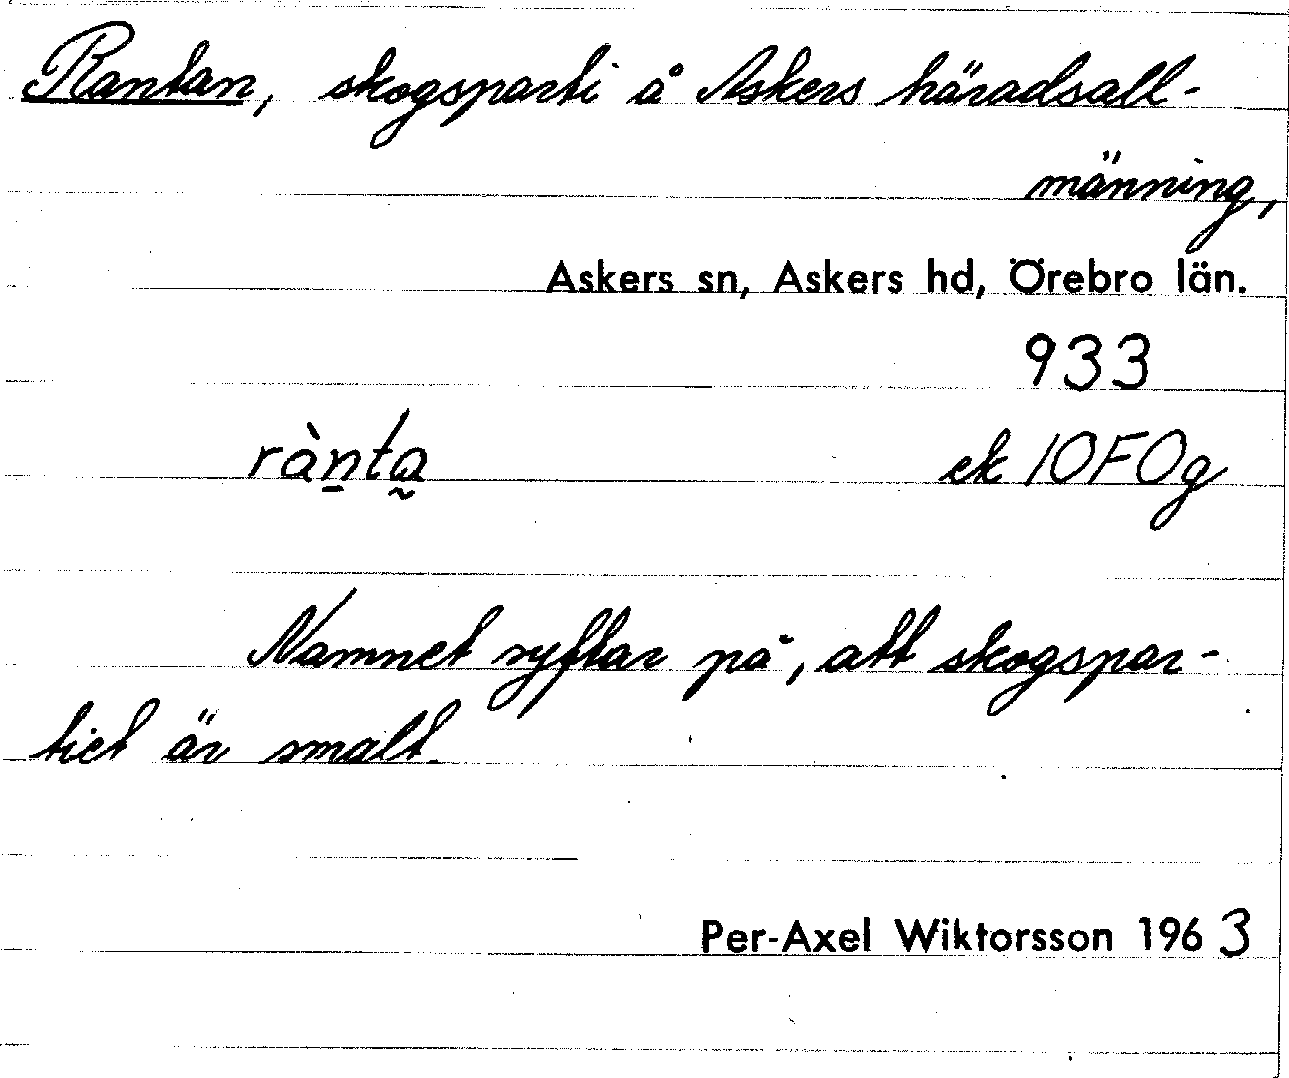 Rantan, skogsparti å Askers häradsall-
männing,
Askers sn, Askers hd, Örebro län.
933
rànta̰ ek 10F0g
Namnet syftar på, att skogspar-
tiet är smalt.
Per-Axel Wiktorsson 1963